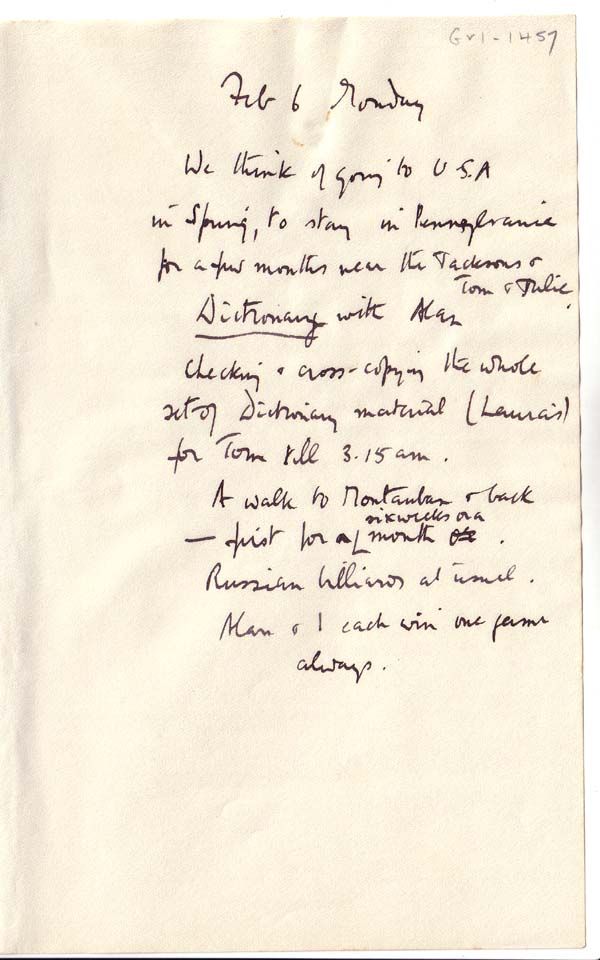 Gv1-1457
Feb 6 Monday
We think of going to U.S.A
in Spring, to stay in Pennsylvania
for a few months near the Jacksons &
Tom & Julie.
Dictionary with Alan
Checking & cross-copying the whole
set of Dictionary material (Laura's)
for Tom till 3.15 am.
A walk to Montauban & back
six weeks or a
— first for a month .
Russian billiards as usual.
Alan & I each win one game
always.